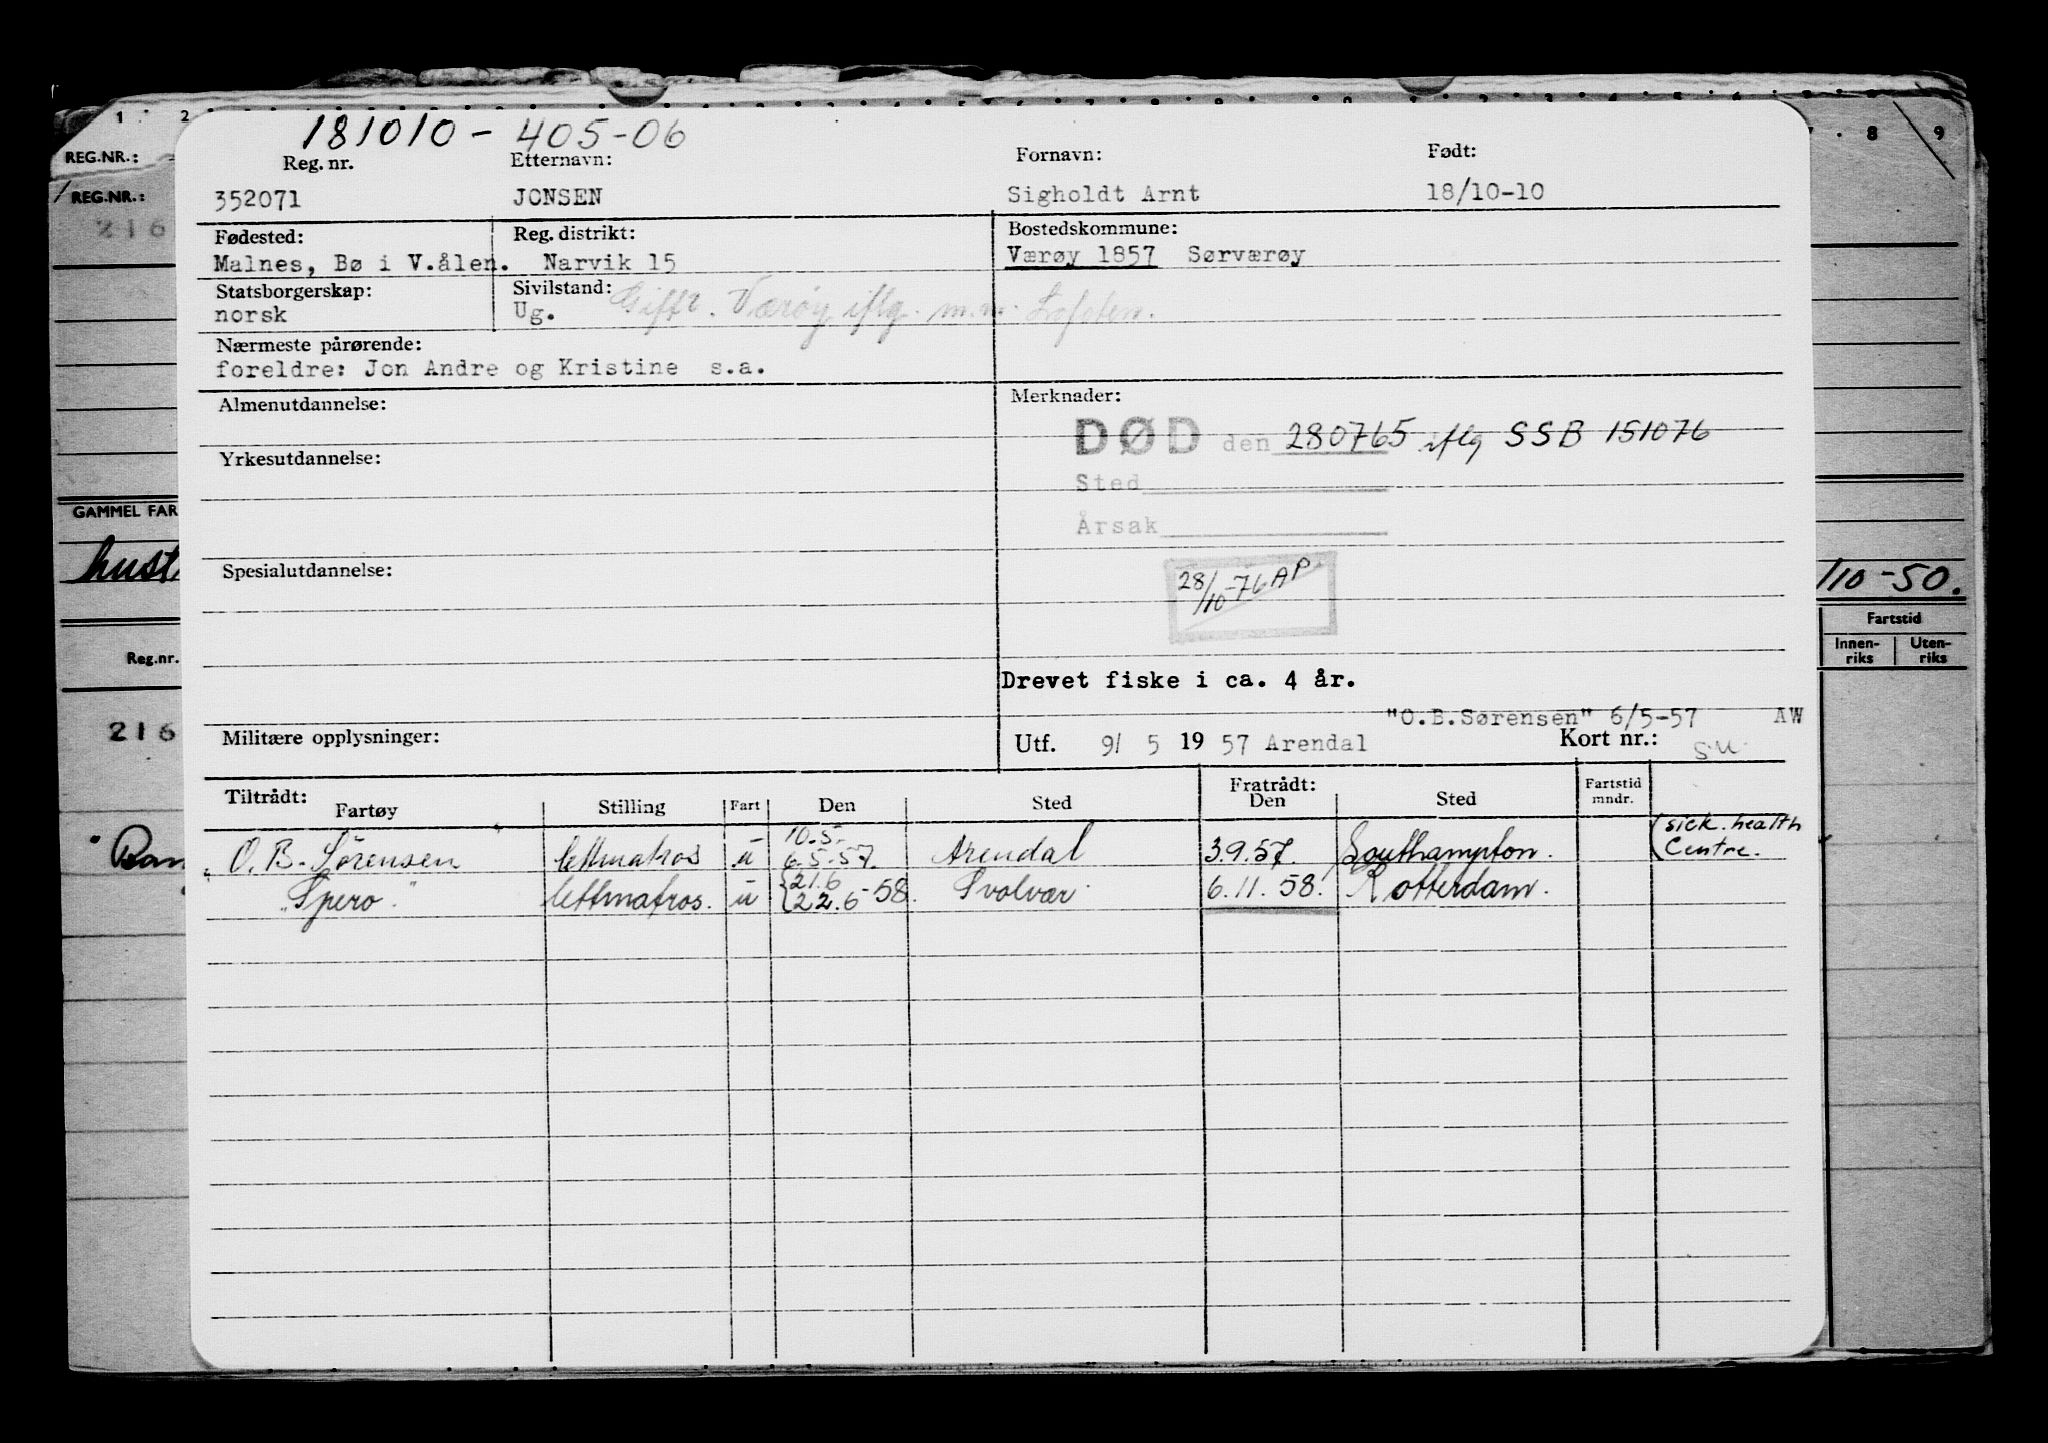 1 2 7 8 9
REG.NR.:
REG.NR.:
216
181010 - 405-06
Reg. nr. Etternavn: Fornavn: Født:
352071 JONSEN Sigholdt Arnt 18/10-10
Fødested: Reg. distrikt: Bostedskommune:
Malnes, Bø i V.ålen. Narvik 15 Værøy 1857 Sørværøy
Statsborgerskap: Sivilstand:
norsk Ug. Gift. Værøy iflg. m.m. Lofoten.
Nærmeste pårørende:
foreldre: Jon Andre og Kristine s.a.
Almenutdannelse: Merknader:
DØD den 280765 iflg SSB 151076
Yrkesutdannelse:
Sted
GAMMEL FAR
Årsak
hust
Spesialutdannelse:
28/10-76 AP
/10-50.
Fartstid
Innen-riks Uten-riks
Reg.nr.
Drevet fiske i ca. 4 år.
"O.B.Sørensen" 6/5-57 AW
216
Militære opplysninger: Utf. 9/ 5 19 57 Arendal Kort nr.: S.U.
Tiltrådt: Fratrådt: Fartstid mndr.
Fartøy Stilling Fart Den Sted Den Sted
10.5.-
O. B. Sørensen lettmatros u 6.5.57. Arendal 3.9.57. Southampton. (sick. health Centre.
21.6
"Spero" lettmatros. u 22.6-58. Svolvær 6.11.58. Rotterdam.